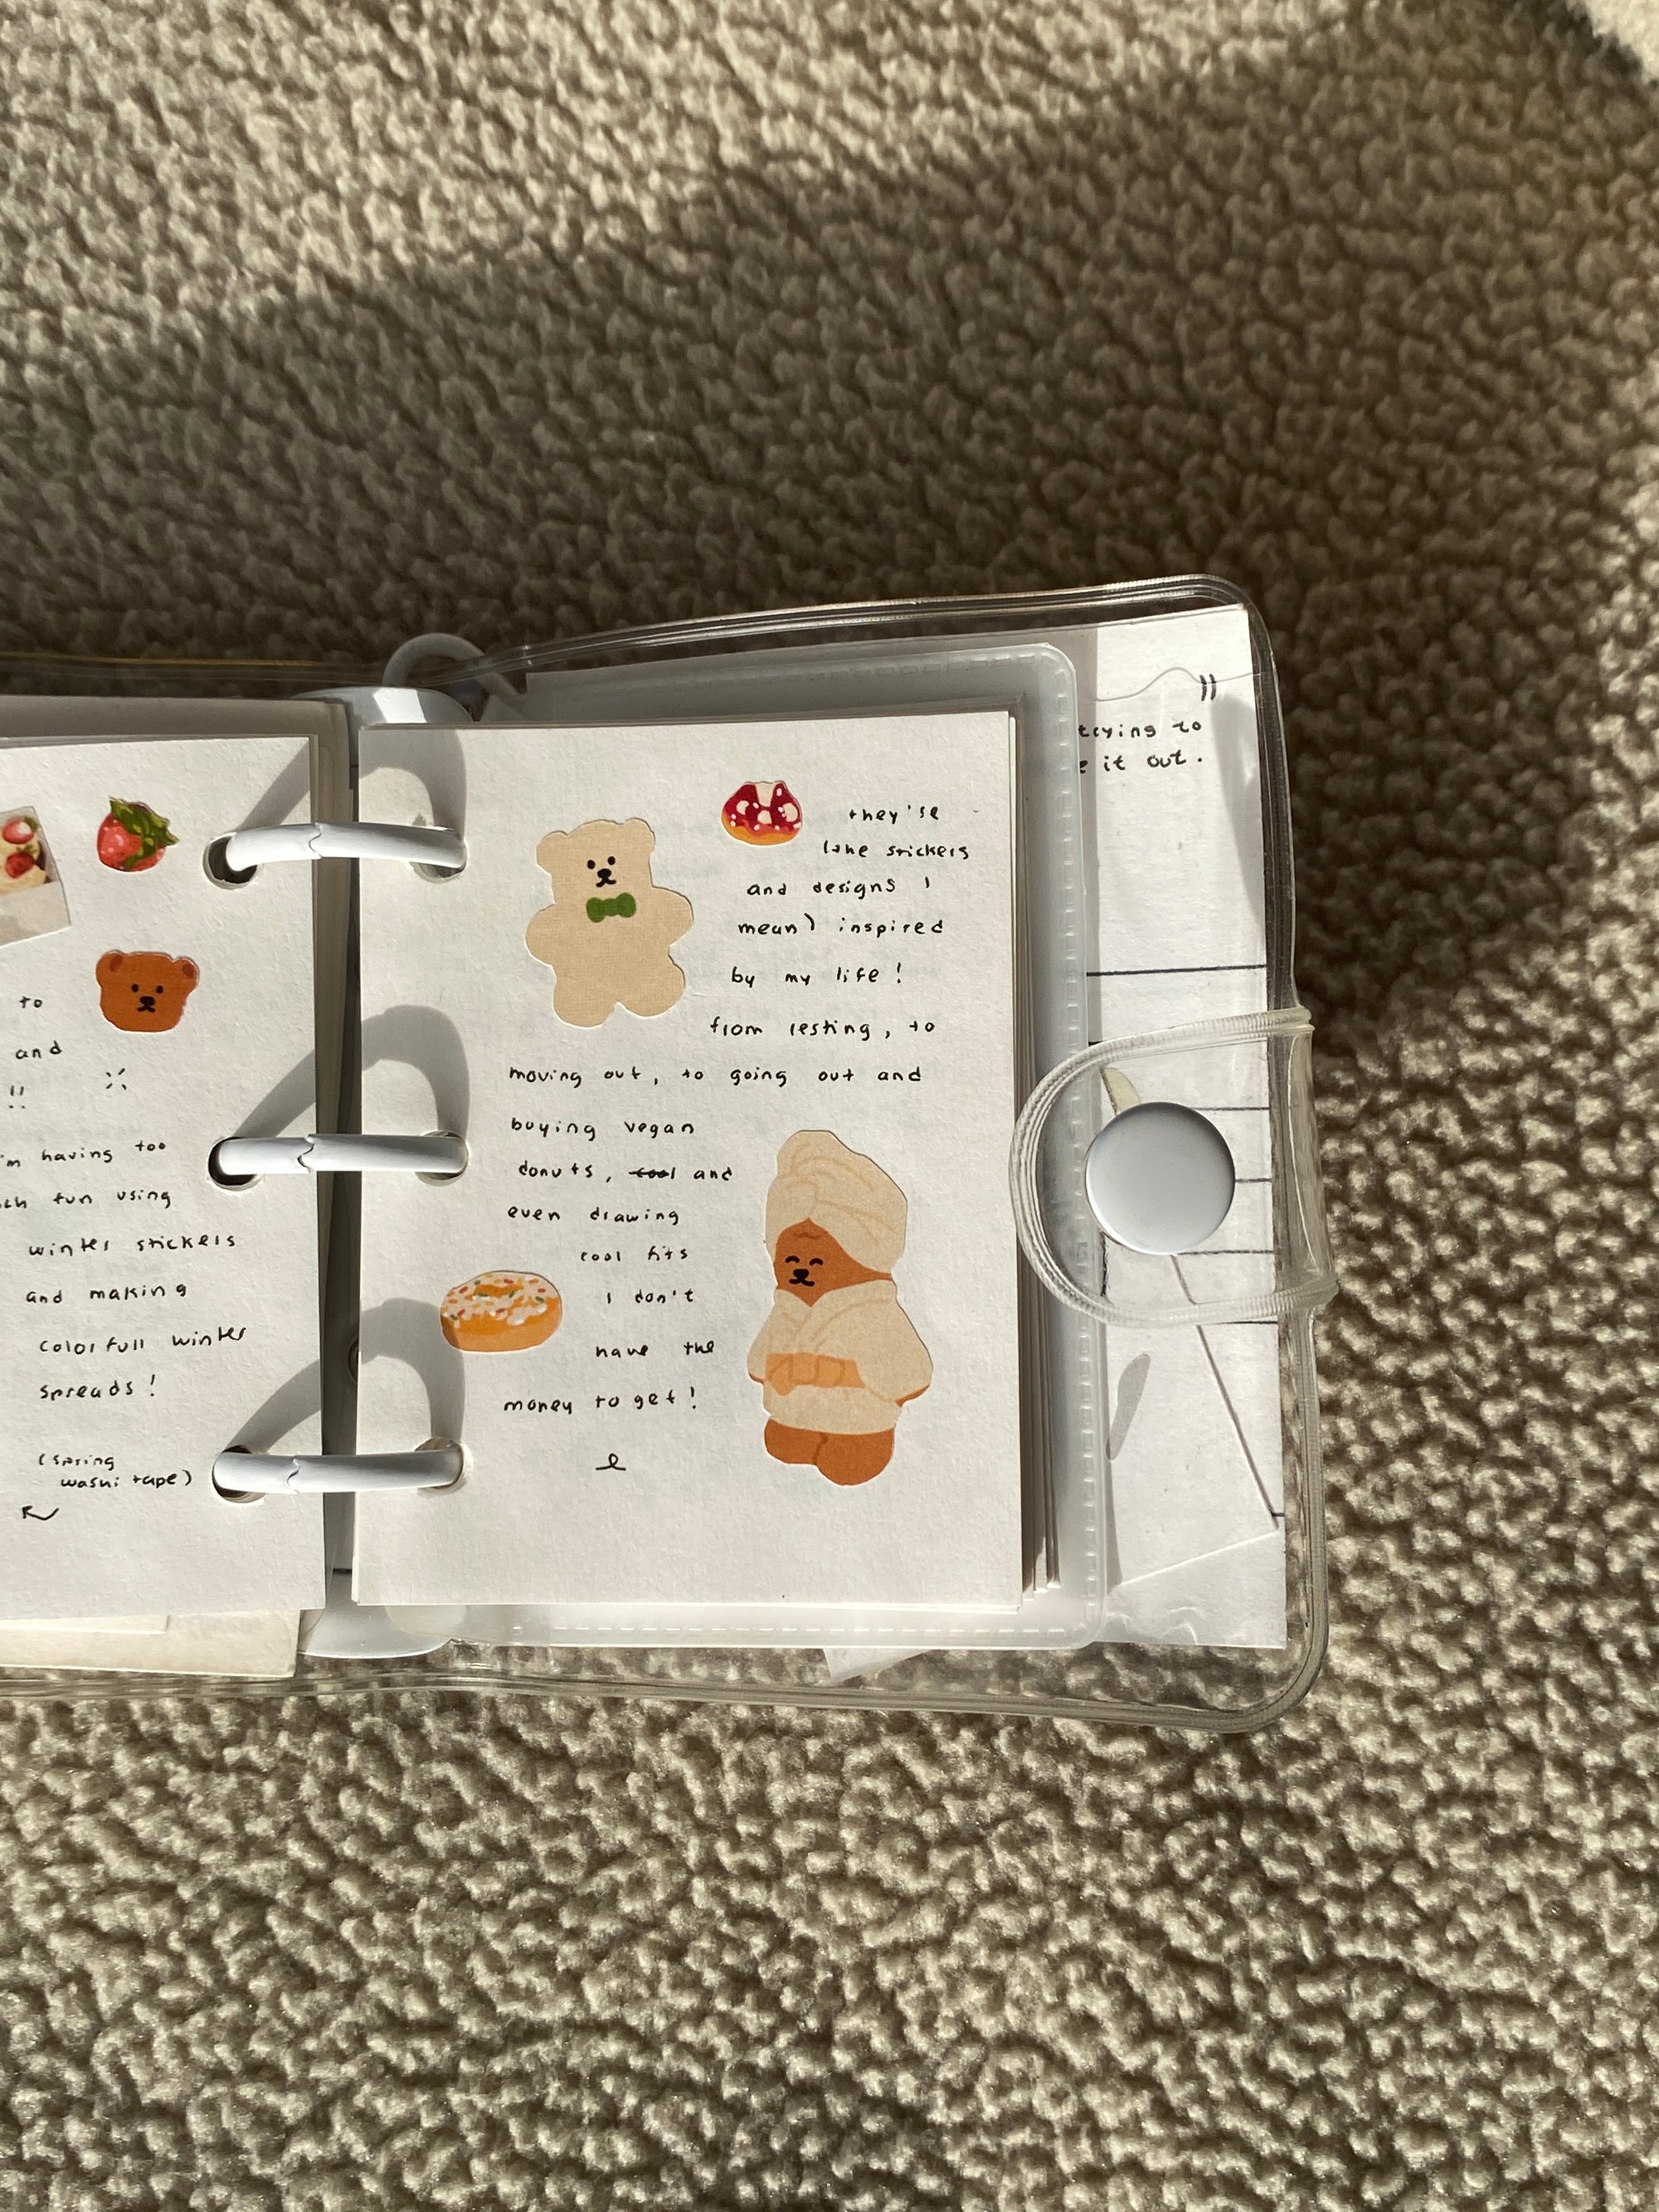 to
and
!!
'm having too
ch fun using
winter stickers
and making
colorfull winter
spreads!
(spring
washi tape)
they're
(the stickers
and designs I
mean) inspired
by my life!
from resting, to
moving out, to going out and
buying vegan
donuts, cool and
even drawing
cool fits
I don't
have the
money to get!
trying to
e it out.